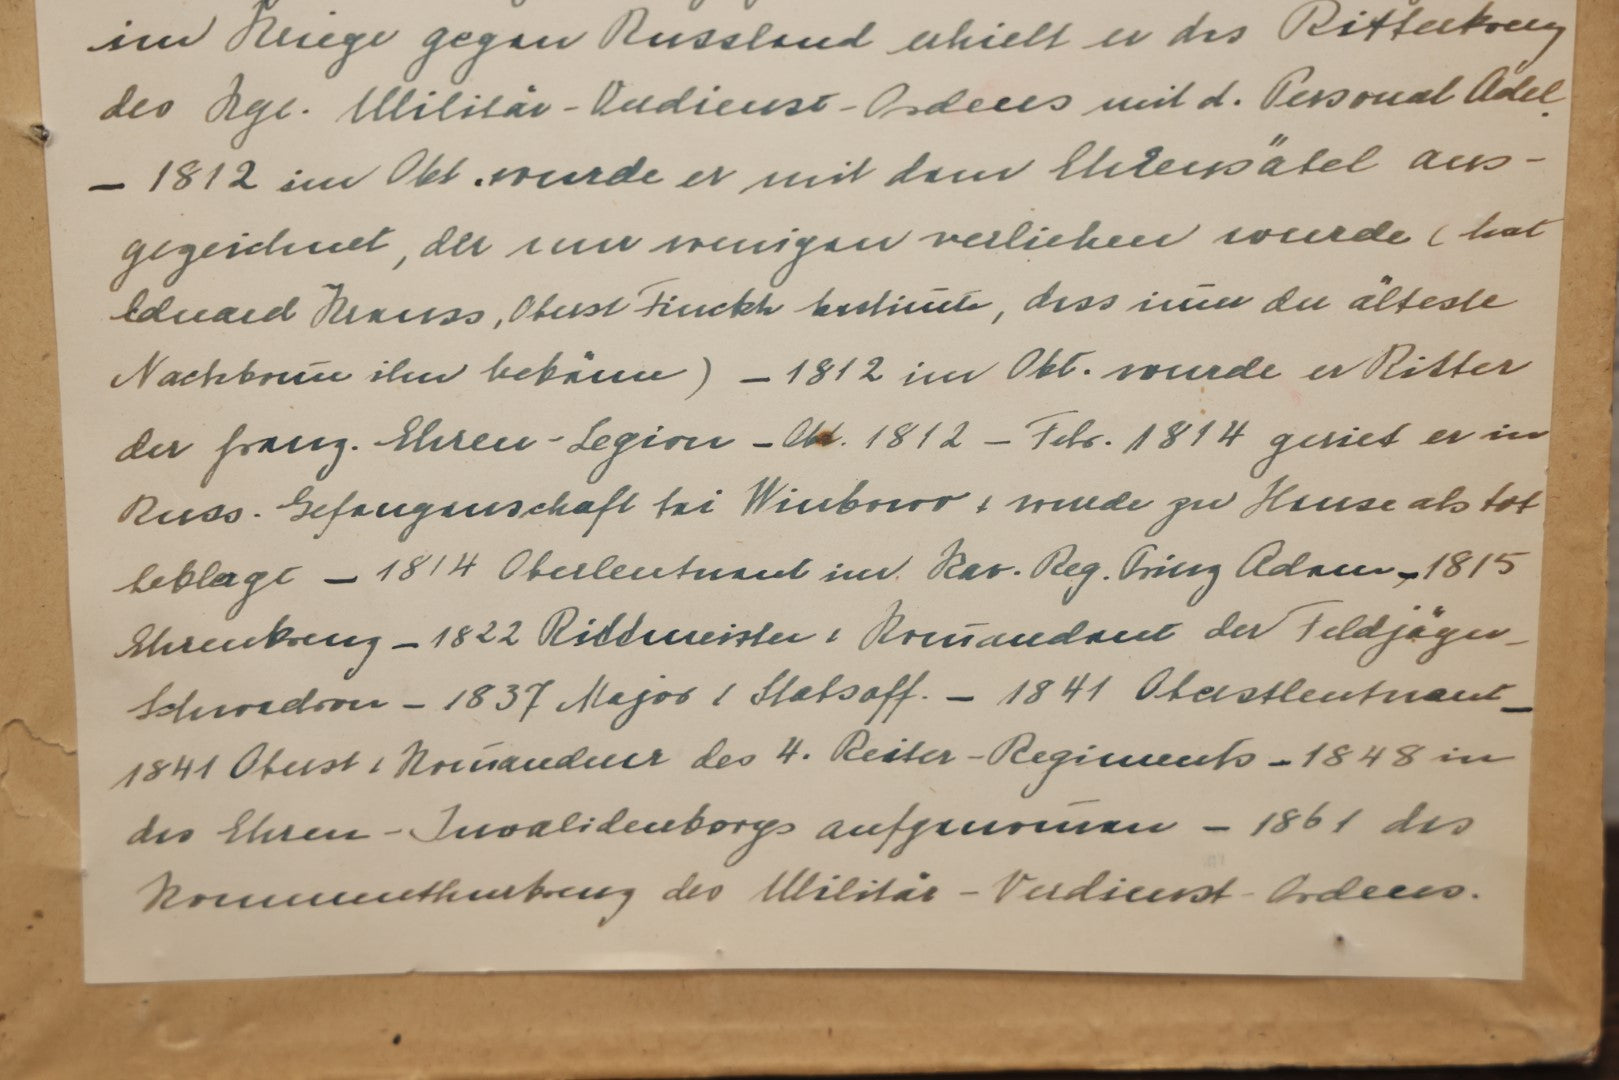 im Kriege gegen Russland erhielt er das Ritterkreuz
des Kgl. Militär-Verdienst-Ordens mit d. Personal Adel.
– 1812 im Okt. wurde er mit dem Ehrensäbel aus-
gezeichnet, der nur wenigen verliehen wurde (hat
Eduard Krauss, Oberst Finckh bestimt̄e, dass im̄er der älteste
Nachkom̄e ihn bekäme) – 1812 im Okt. wurde er Ritter
der franz. Ehren-Legion – Okt. 1812 – Febr. 1814 geriet er in
Russ. Gefangenschaft bei Winkowo & wurde zu Hause als tot
beklagt – 1814 Oberleutnant im Kav. Reg. Prinz Adam – 1815
Ehrenkreuz – 1822 Rittmeister & Kom̄andant der Feldjäger-
Schwadron – 1837 Major & Stabsoff. – 1841 Oberstleutnant –
1841 Oberst & Kom̄andeur des 4. Reiter-Regiments – 1848 in
das Ehren-Invalidenkorps aufgenom̄en – 1861 das
Kommenthurkreuz des Militär-Verdienst-Ordens.